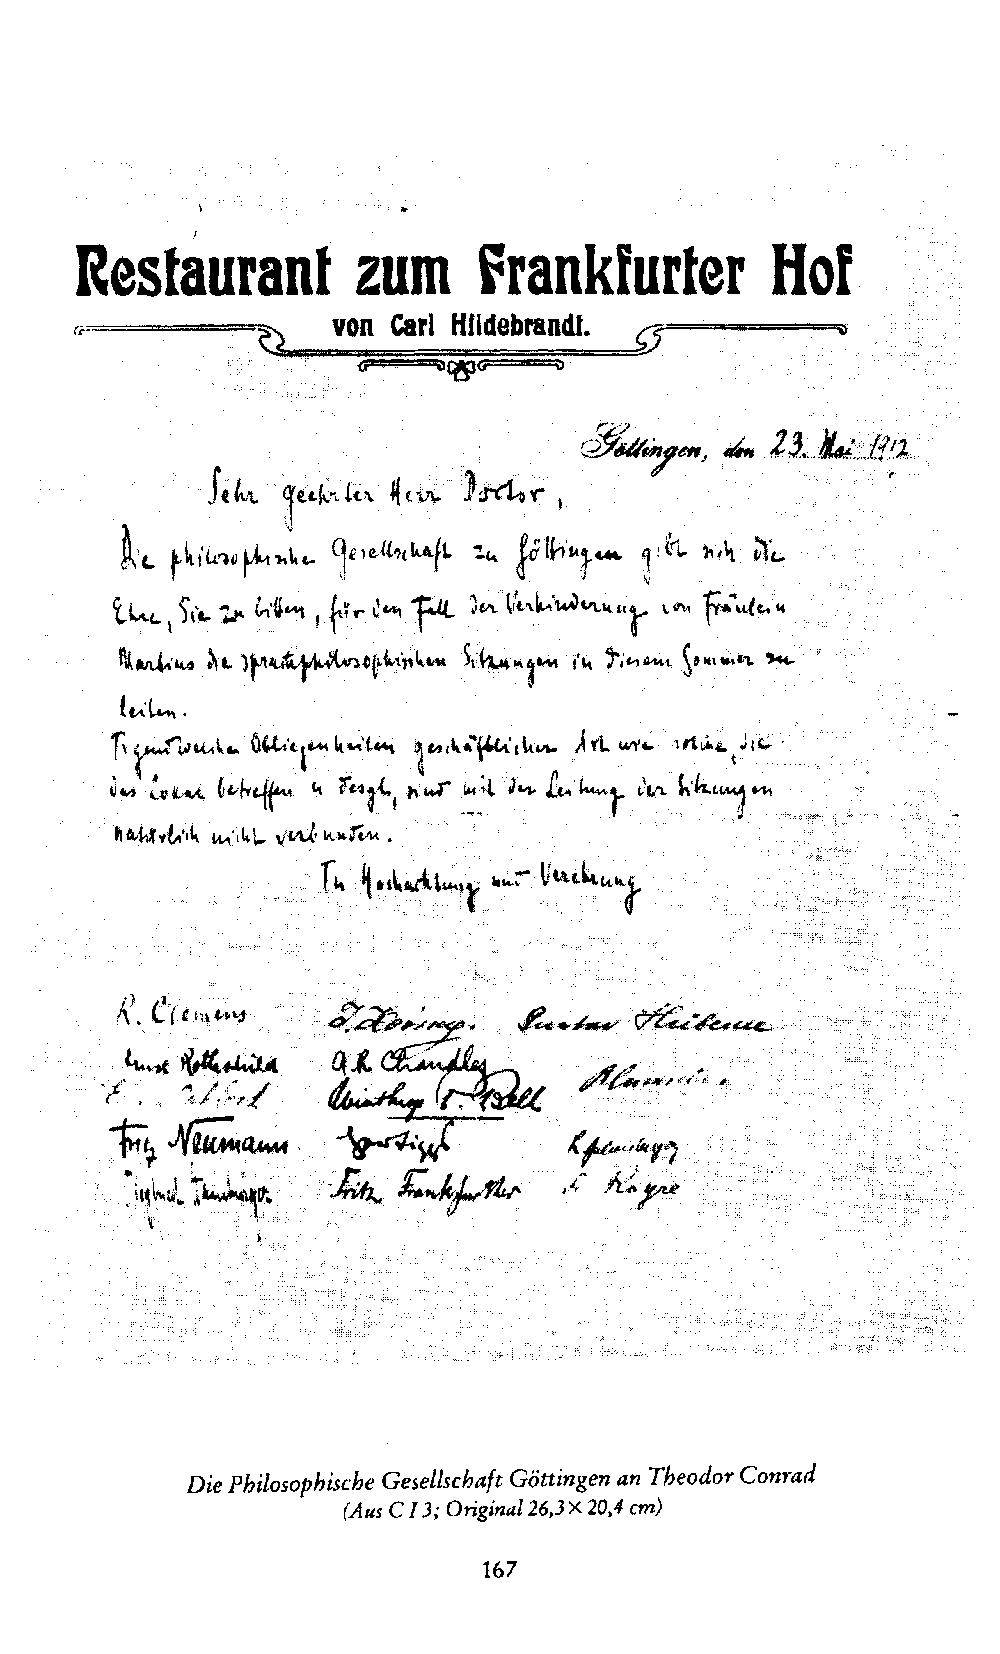 Restaurant zum Frankfurter Hof
von Carl Hildebrandt.
Göttingen, den 23. Mai 1912
Sehr geehrter Herr Doctor,
Die philosophische Gesellschaft zu Göttingen gibt sich die
Ehre, Sie zu bitten, für den Fall der Verhinderung von Fräulein
Martius die sprachphilosophischen Sitzungen in diesem Sommer zu
leiten.
Irgendwelche Obliegenheiten geschäftlicher Art wie solche, die
das Lokal betreffen u desgl., sind mit der Leitung der Sitzungen
natürlich nicht verbunden.
In Hochachtung und Verehrung
R. Clemens J. Hering. Gustav Hübener
Ernst Rothschild A.R. Chandler
Winthrop P. Bell
Fritz Neumann
Fritz Frankfurther Koyré
Die Philosophische Gesellschaft Göttingen an Theodor Conrad
(Aus C I 3; Original 26,3 × 20,4 cm)
167